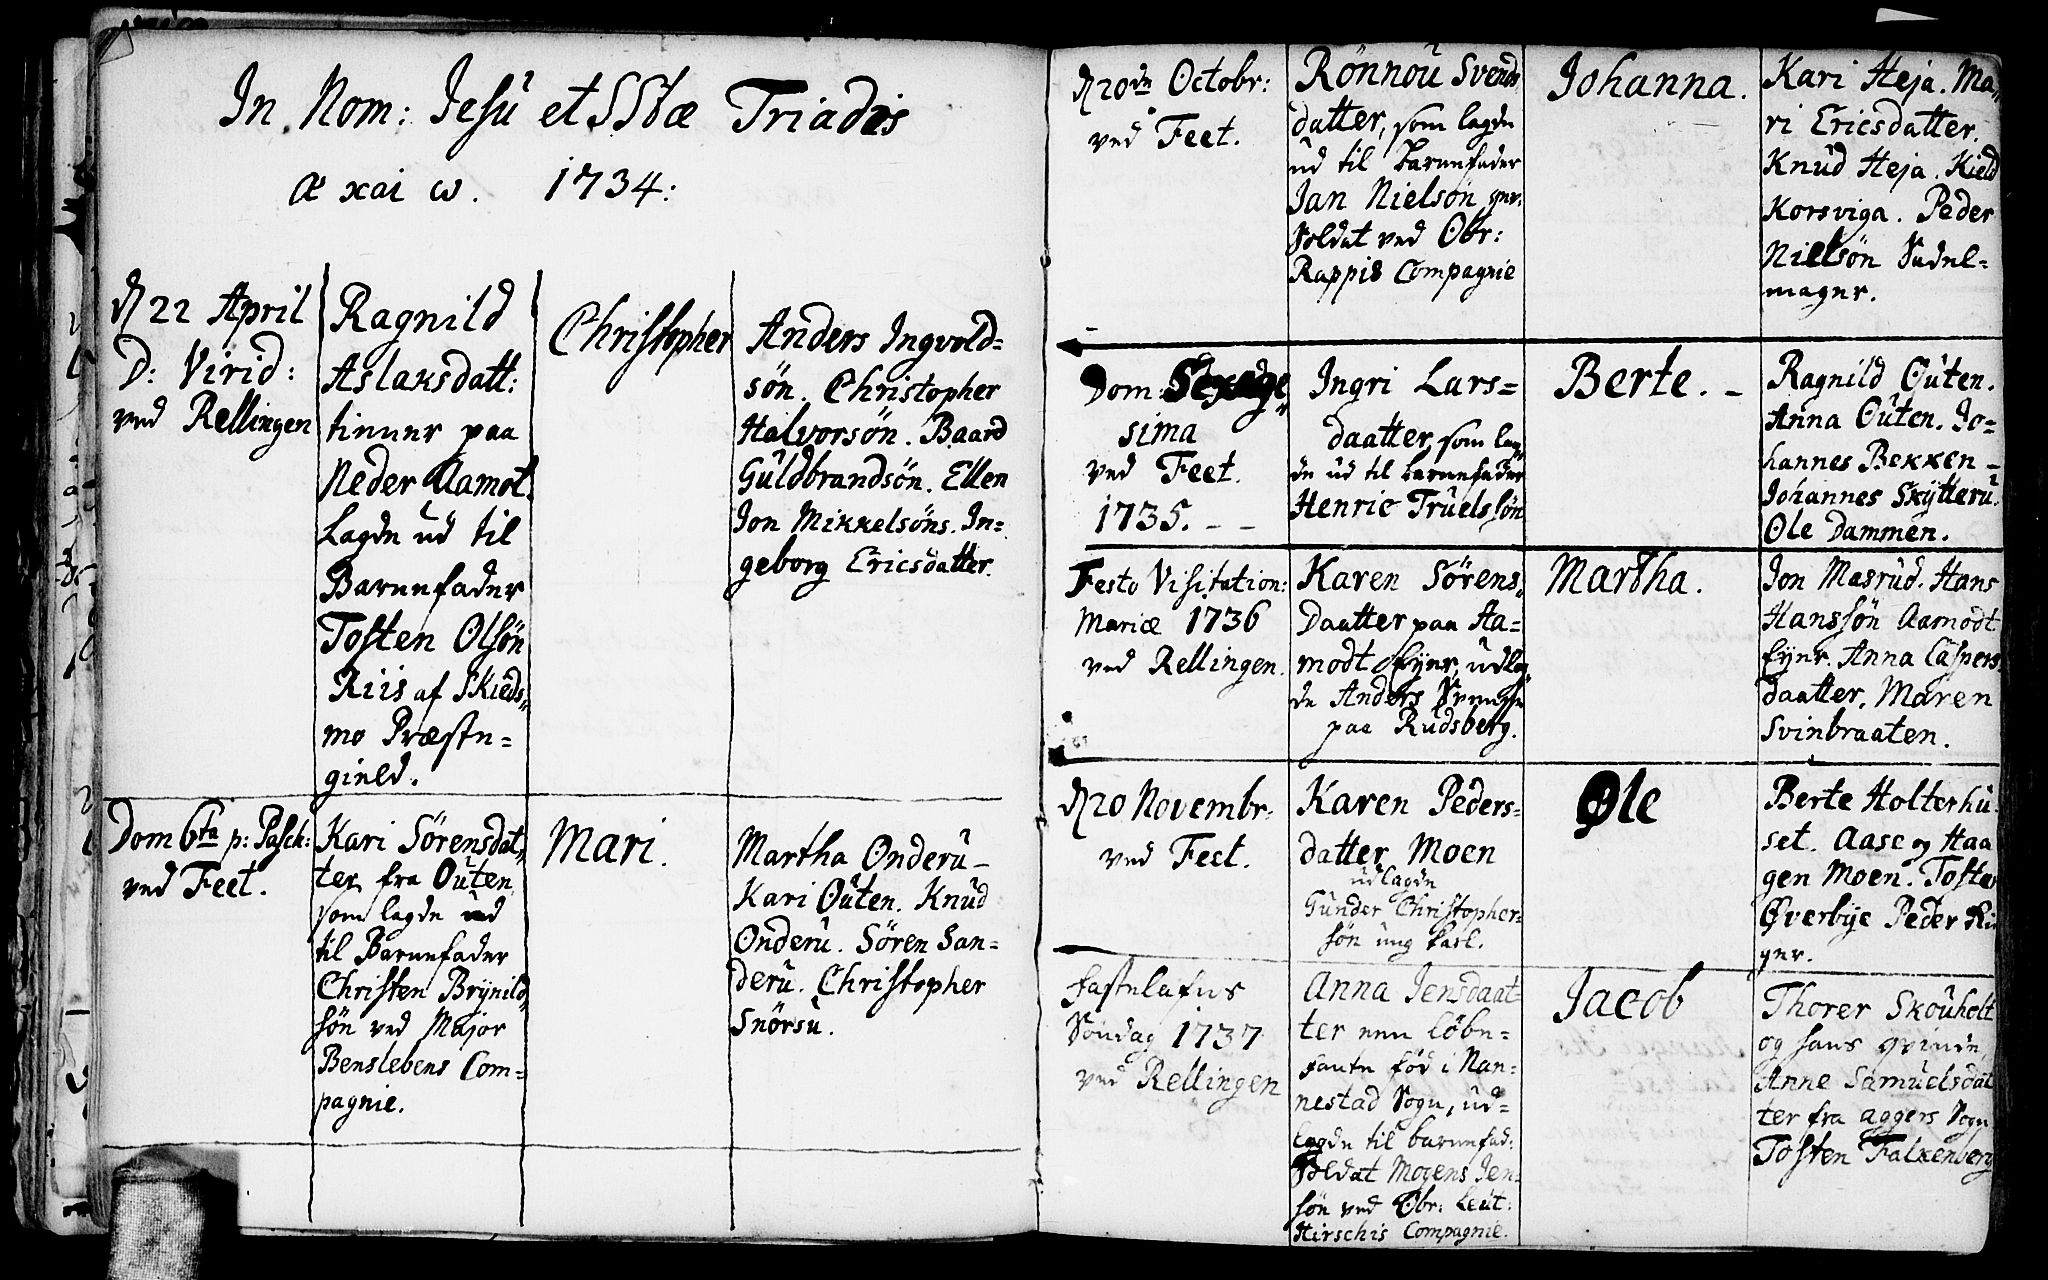 In Nom: Jesu et SStæ Triadis
α xai ω. 1734:
d 22 April
D: Virid:
ved Rellingen
Ragnild
Aslaksdatt:
tiener paa
Neder Aamot.
Lagde ud til
Barnefader
Tosten Olsön
Riis af Skieds„
mo Præste=
gield.
Christopher
Anders Ingvold=
sön. Christopher
Halvorsön. Baard
Guldbrandsön. Ellen
Jon Mikkelsöns. In=
geborg Ericsdatter.
Dom 6ta p: Pasch:
ved Feet.
Kari Sörensdat„
ter fra Outen,
som lagde ud
til Barnefader
Christen Brynild„
sön ved Major
Benslebens Com=
pagnie.
Mari.
Martha Onderu –
Kari Outen. Knud
Onderu. Sören San=
deru. Christopher
Snörsu.
d 20de Octobr:
ved Feet.
Rönnou Svends
datter, som lagde
ud til Barnefader
Jan Nielsön gev:
Soldat ved Obr:
Rappis Compagnie
Johanna.
Kari Heja. Ma„
ri Ericsdatter.
Knud Heja. Kield
Korsviga. Peder
Nielsön Sadel=
mager.
Dom: Sexage„
sima
ved Feet.
1735. – –
Ingri Lars=
daatter, som lag„
de ud til barnefader
Henric Truelssön
Berte. –
Ragnild Outen.
Anna Outen. Jo=
hannes Bekken –
Johannes Skytteru.
Ole Dammen.
Festo Visitation:
Mariæ 1736
ved Rellingen.
Karen Sörens„
Daatter paa Aa=
modt Eyer, udlag„
de Anders
paa Rudsberg.
Martha.
Jon Masrud. Hans
Hanssön Aamodt
Eyer. Anna Caspers
daatter, Maren
Svinbraaten.
d 20 Novembr:
ved Feet.
Karen Peders=
datter Moen
udlagde
Gunder Christopher=
sön ung karl.
Ole
Berte Holterhu„
set. Aase og Haa
gen Moen. Tosten
Øverbye Peder Ri
ger.
Fastelafns
Söndag 1737
ved Rellingen
Anna Jensdaat=
ter een löbe=
fante föd i Nan=
nestad Sogn, ud=
lagde til barnefad:
Soldat Mogens Jen=
sön ved Obr: Leut:
Hirschis Compagnie.
Jacob
Thorer Skouholt
og hans qvinde
Anne Samuelsdat
ter fra Aggers Sogn
Tosten Falkenberg